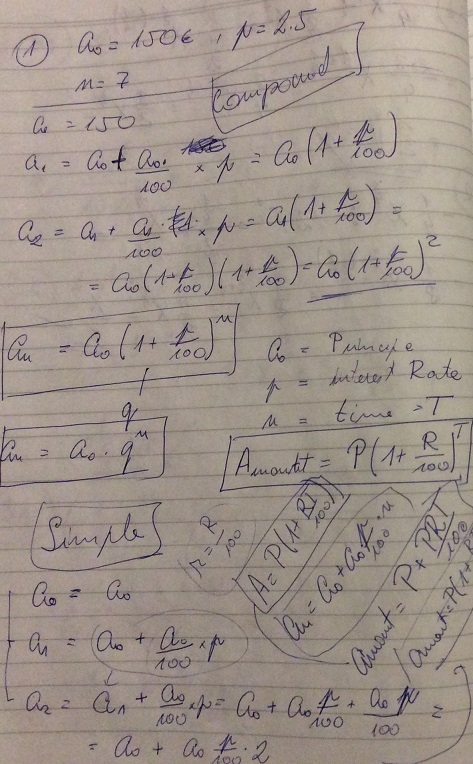 ① a₀ = 150€, p = 2.5
n = 7
Compound
a₀ = 150
a₁ = a₀ + a₀/100 × p = a₀(1 + p/100)
a₂ = a₁ + a₁/100 × p = a₁(1 + p/100) =
= a₀(1 + p/100)(1 + p/100) = a₀(1 + p/100)²
aₙ = a₀(1 + p/100)ⁿ
q
aₙ = a₀ · qⁿ
a₀ = Principe
p = interest Rate
n = time = T
Amount = P(1 + R/100)ᵀ
Simple
r = R/100
A = P(1 + RT/100)
aₙ = a₀ + a₀ p/100 · n
Amount = P + PRT/100
Amount = P(1 +
a₀ = a₀
a₁ = a₀ + a₀/100 × p
a₂ = a₁ + a₀/100 × p = a₀ + a₀ p/100 + a₀ p/100 =
= a₀ + a₀ p/100 · 2